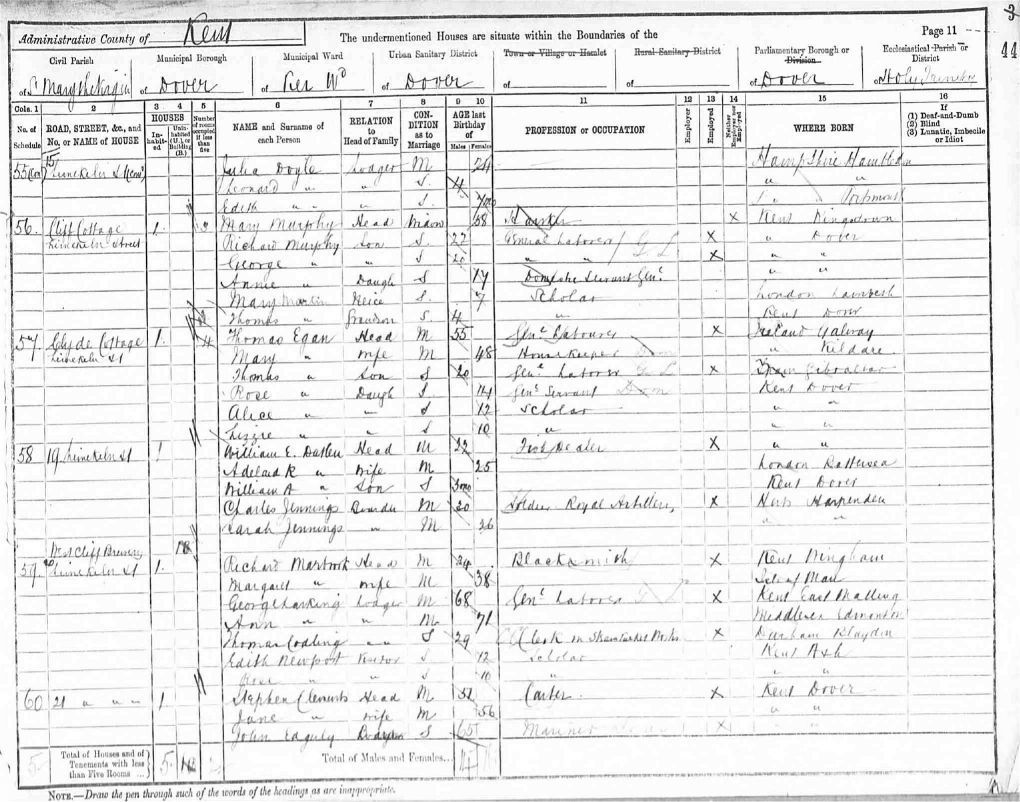 Administrative County of Kent
The undermentioned Houses are situate within the Boundaries of the
Page 11
44
Civil Parish
of St Mary the Virgin
Municipal Borough
of Dover
Municipal Ward
of Pier Wd
Urban Sanitary District
of Dover
Town or Village or Hamlet
of
Rural Sanitary District
of
Parliamentary Borough or Division
of Dover
Ecclesiastical Parish or District
of Holy Trinity
Cols. 1 2 3 4 5 6 7 8 9 10 11 12 13 14 15 16
No. of Schedule
ROAD, STREET, &c., and No. or NAME of HOUSE
HOUSES
Inhabited
Uninhabited (U.), or Building (B.)
Number of rooms occupied if less than five
NAME and Surname of each Person
RELATION to Head of Family
CONDITION as to Marriage
AGE last Birthday of
Males Females
PROFESSION or OCCUPATION
Employer
Employed
Neither Employer nor Employed
WHERE BORN
If
(1) Deaf-and-Dumb
(2) Blind
(3) Lunatic, Imbecile or Idiot
55 15 Julia Doyle Lodger M 24 Hampshire
Leonard " " S 4 " "
Edith " " S "
56 Cliff Cottage 1 Mary Murphy Head Widow 58 X Kent Kingsdown
Street Richard Murphy Son S 22 General Labourer G. L X " Dover
George " " S 20 " " X " "
Annie " Daugh S 17 Domestic Servant Genl " "
Mary Martin Neice S 7 Scholar London Lambeth
Thomas " Grandson S 4 " Kent Dover
57 Clyde Cottage 1 4 Thomas Egan Head M 55 Genl Labourer X Ireland Galway
Mary " Wife M 48 House Keeper " Kildare
Thomas " Son S 20 Genl Labourer G L X Spain Gibraltar
Rose " Daugh S 14 Genl Servant Dom Kent Dover
Alice " " S 12 Scholar " "
Lizzie " " S 10 " " "
58 19 St 1 William E. Head M 22 Fish Dealer X " "
Adelaid R " Wife M 25 London Battersea
William A " Son S 3mo Kent Dover
Charles Jennings Boarder M 30 Soldier Royal Artillery X Herts Harpenden
Sarah Jennings " M 26 " "
West Cliff Brewery
59 20 St 1 Richard Head M 24 Blacksmith X Kent Wingham
Margaret " Wife M 38 Isle of Man
George Larking Lodger M 68 Genl Labourer G L X Kent East Malling
Ann " " M 71 Middlesex Edmonton
Thomas Codling " S 29 Clerk in X Durham Blaydon
Edith Newport Visitor S 12 Scholar Kent Ash
" " S 10 " " "
60 21 " " " 1 Stephen Clements Head M 51 Carter X Kent Dover
Jane " Wife M 56 " "
John S 65 Mariner X " "
5 Total of Houses and of Tenements with less than Five Rooms ... 5
Total of Males and Females...
NOTE.—Draw the pen through such of the words of the headings as are inappropriate.